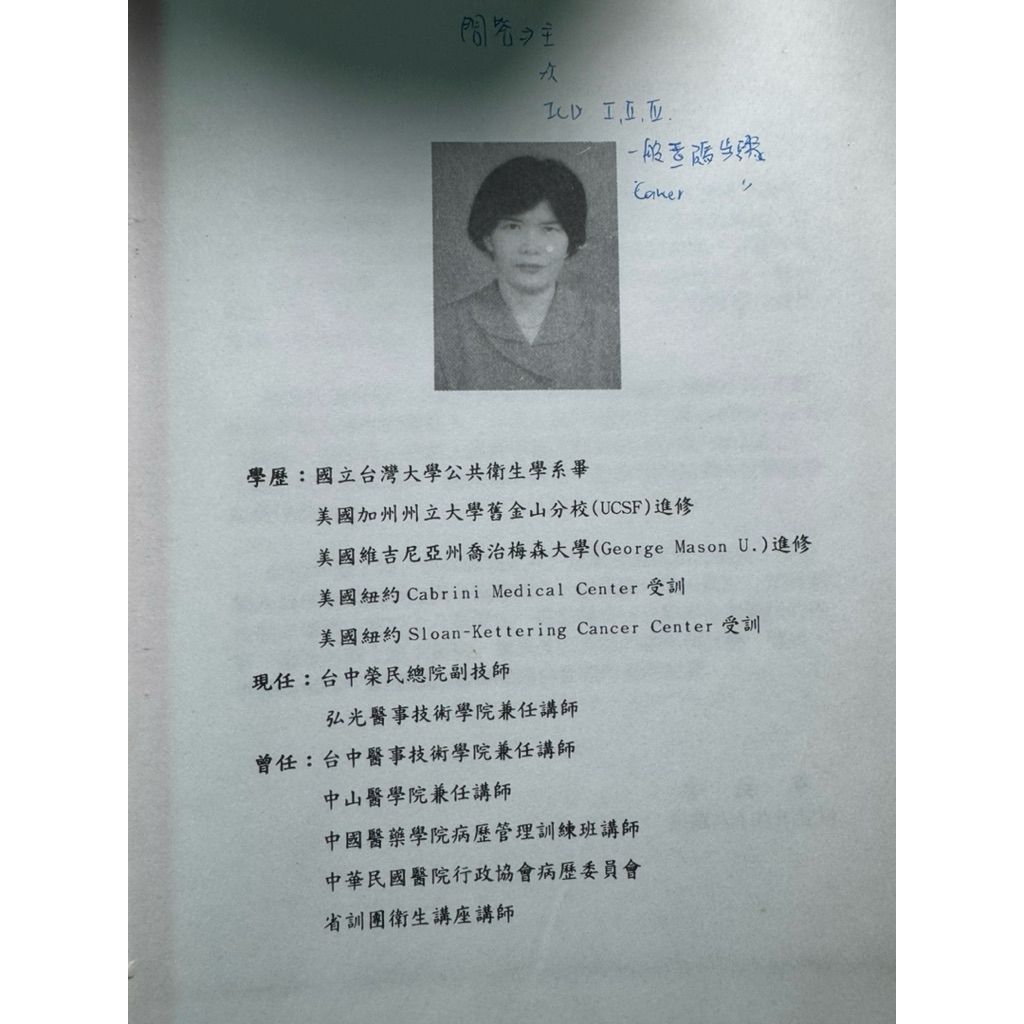 次
ICD I,II,III.
一般查碼步驟
Cancer 〃
學歷：國立台灣大學公共衛生學系畢
美國加州州立大學舊金山分校(UCSF)進修
美國維吉尼亞州喬治梅森大學(George Mason U.)進修
美國紐約 Cabrini Medical Center 受訓
美國紐約 Sloan-Kettering Cancer Center 受訓
現任：台中榮民總院副技師
弘光醫事技術學院兼任講師
曾任：台中醫事技術學院兼任講師
中山醫學院兼任講師
中國醫藥學院病歷管理訓練班講師
中華民國醫院行政協會病歷委員會
省訓團衛生講座講師